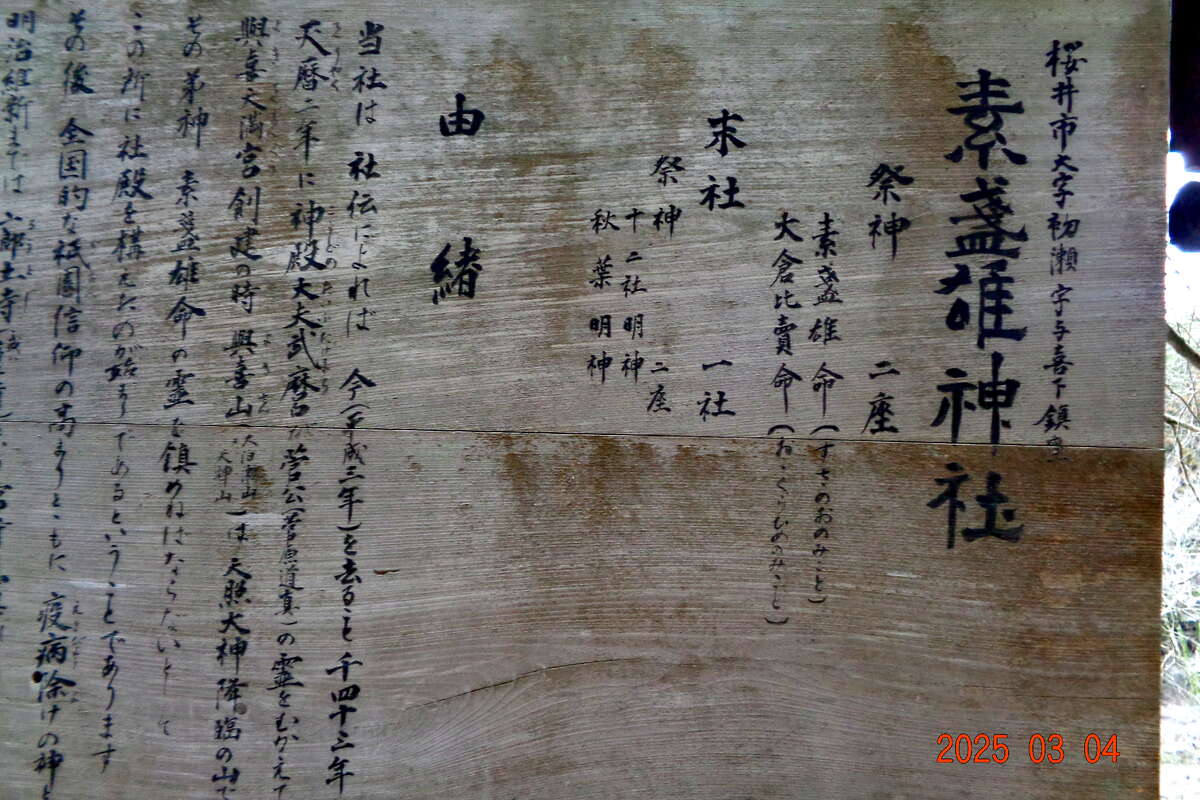 桜井市大字初瀬 字与喜下鎮座
素盞雄神社
祭神 二座
素盞雄命(すさのおのみこと)
大倉比賣命(おゝくらひめのみこと)
末社 一社
祭神 二座
十二社明神
秋葉明神
由緒
当社は 社伝によれば 今(平成三年)を去ること 千四十三年
天暦二年に 神殿大夫武麿が 菅公(菅原道真)の霊をむかえて
興喜天満宮創建の時 興喜山(大泊瀬山 大神山)は 天照大神降臨の山で
その弟神 素盞雄命の霊を鎮めねばならないとして
この所に社殿を構えたのが始まりであるということであります
その後 全国的な祇園信仰の高まりとゝもに 疫病除けの神と
明治維新までは
2025 03 04